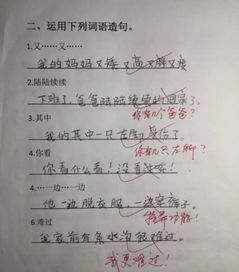 二、运用下列词语造句。
1.又……又……
我的妈妈又矮又高又胖又瘦
2.陆陆续续
下班了，爸爸陆陆续续的回家了。
你有几个爸爸？
3.其中
我的其中一只左脚受伤了。
你有几只左脚？
4.你看
你看什么看！没看过呀！
4.…一边…一边
他一边脱衣服，一边穿裤子。
6.难过
我家前有条水沟很难过。
我更难过！